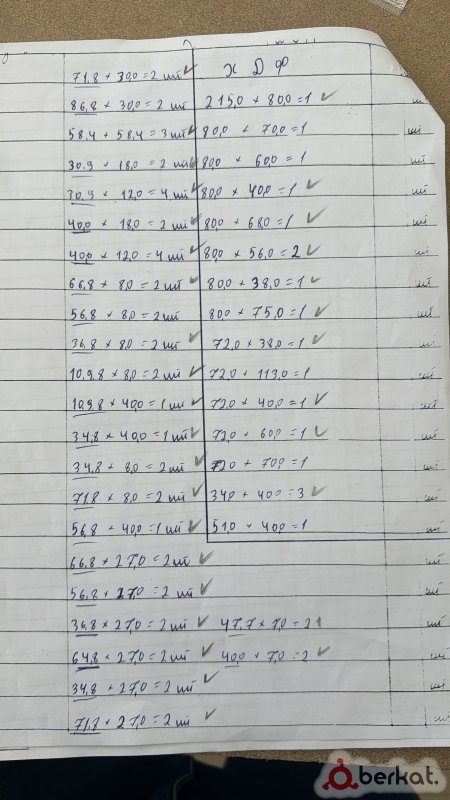 71,8 × 30,0 = 2 шт ✓
86,8 × 30,0 = 2 шт
58,4 × 58,4 = 3 шт ✓
30,9 × 18,0 = 2 шт ✓
30,9 × 12,0 = 4 шт ✓
40,0 × 18,0 = 2 шт ✓
40,0 × 12,0 = 4 шт ✓
66,8 × 8,0 = 2 шт ✓
56,8 × 8,0 = 2 шт
36,8 × 8,0 = 2 шт ✓
10,9,8 × 8,0 = 2 шт ✓
10,9,8 × 40,0 = 1 шт ✓
34,8 × 40,0 = 1 шт ✓
34,8 × 8,0 = 2 шт ✓
71,8 × 8,0 = 2 шт ✓
56,8 × 40,0 = 1 шт ✓
66,8 × 27,0 = 2 шт ✓
56,8 × 27,0 = 2 шт ✓
36,8 × 27,0 = 2 шт ✓
64,8 × 27,0 = 2 шт ✓
34,8 × 27,0 = 2 шт ✓
71,8 × 27,0 = 2 шт ✓
Х Д Ф
215,0 × 80,0 = 1 ✓
80,0 × 70,0 = 1
80,0 × 60,0 = 1
80,0 × 40,0 = 1 ✓
80,0 × 68,0 = 1 ✓
80,0 × 56,0 = 2 ✓
80,0 × 38,0 = 1 ✓
80,0 × 75,0 = 1 ✓
72,0 × 38,0 = 1 ✓
72,0 × 113,0 = 1
72,0 × 40,0 = 1 ✓
72,0 × 60,0 = 1 ✓
72,0 × 70,0 = 1
34,0 × 40,0 = 3 ✓
51,0 × 40,0 = 1
47,7 × 7,0 = 2
40,0 × 7,0 = 2 ✓
шт
шт
шт
шт
шт
шт
шт
шт
шт
шт
шт
шт
шт
шт
шт
шт
шт
шт
шт
шт
berkat.